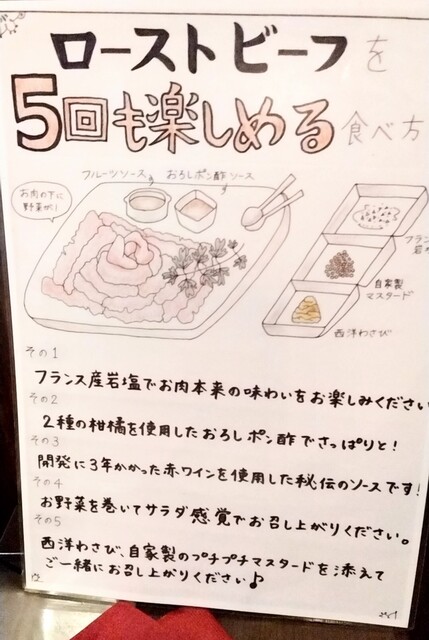 ローストビーフを
5回も楽しめる食べ方
フルーツソース おろしポン酢ソース
お肉の下に
野菜が!
フラン
岩
自家製
マスタード
西洋わさび
その1
フランス産岩塩でお肉本来の味わいをお楽しみください
その2
2種の柑橘を使用したおろしポン酢でさっぱりと!
その3
開発に3年かかった赤ワインを使用した秘伝のソースです!
その4
お野菜を巻いてサラダ感覚でお召し上がりください。
その5
西洋わさび、自家製のプチプチマスタードを添えて
ご一緒にお召し上がりください♪